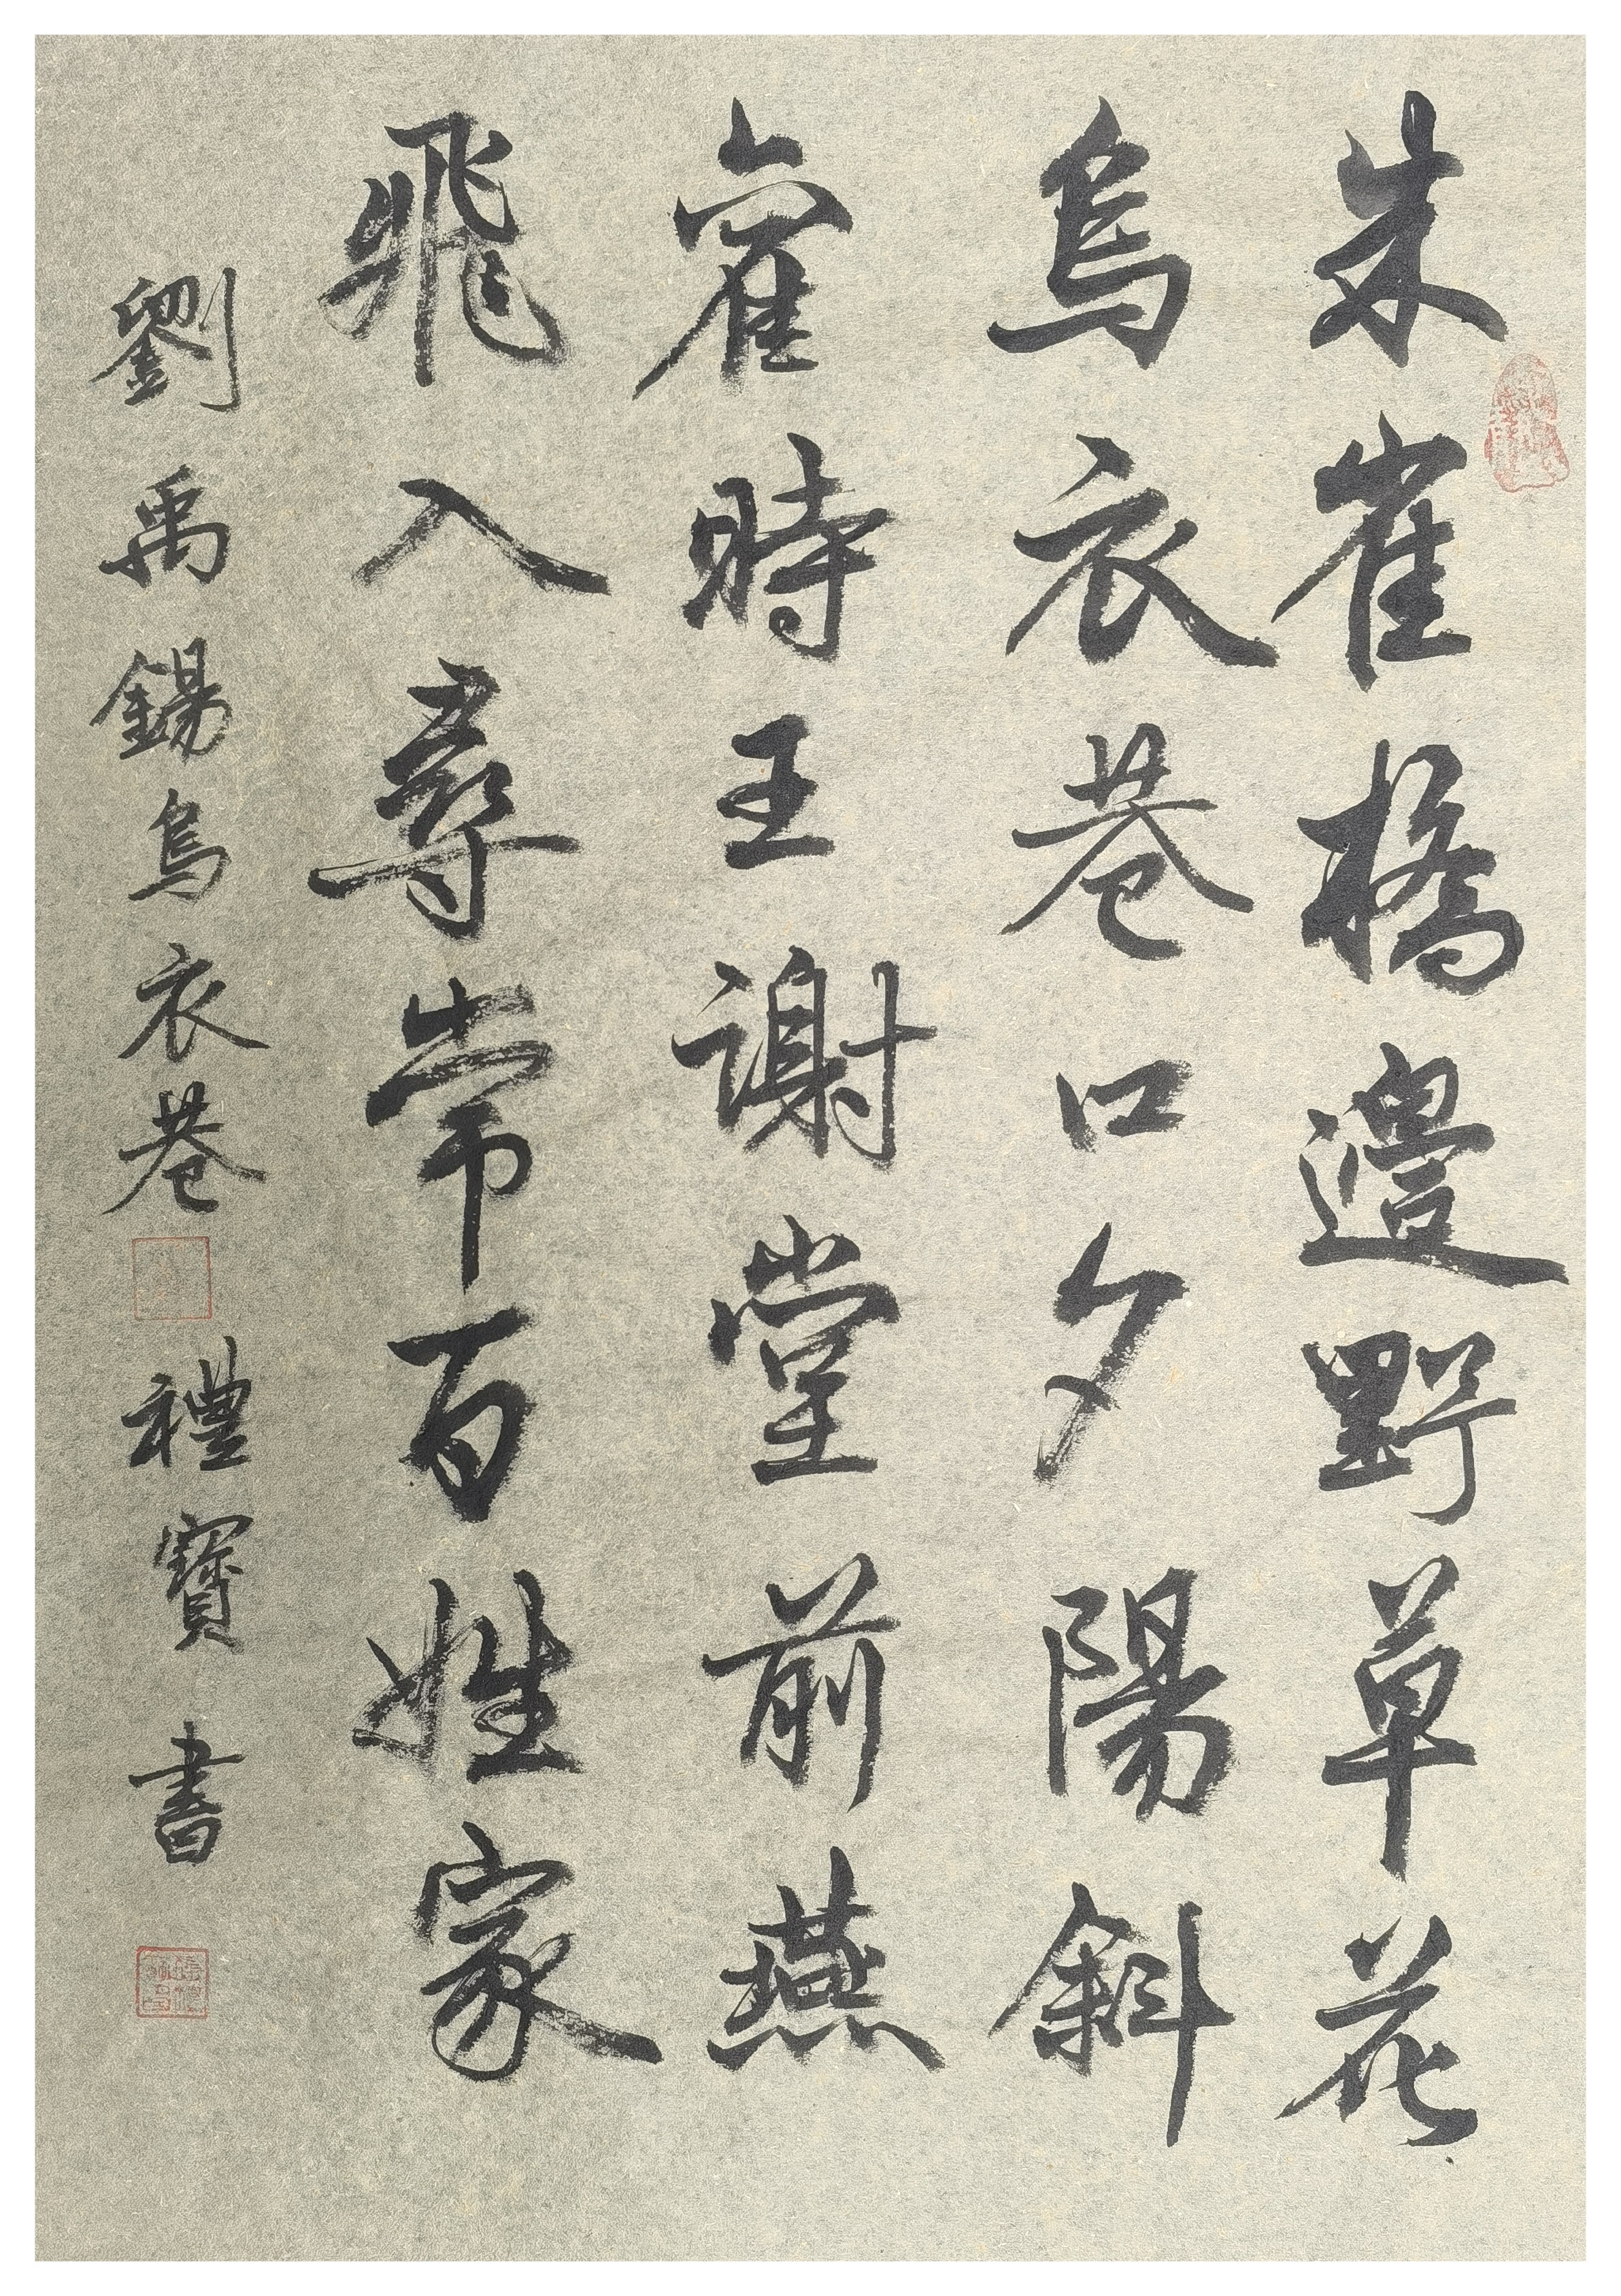 朱雀橋邊野草花
烏衣巷口夕陽斜
舊時王謝堂前燕
飛入尋常百姓家
劉禹錫烏衣巷 禮寶書